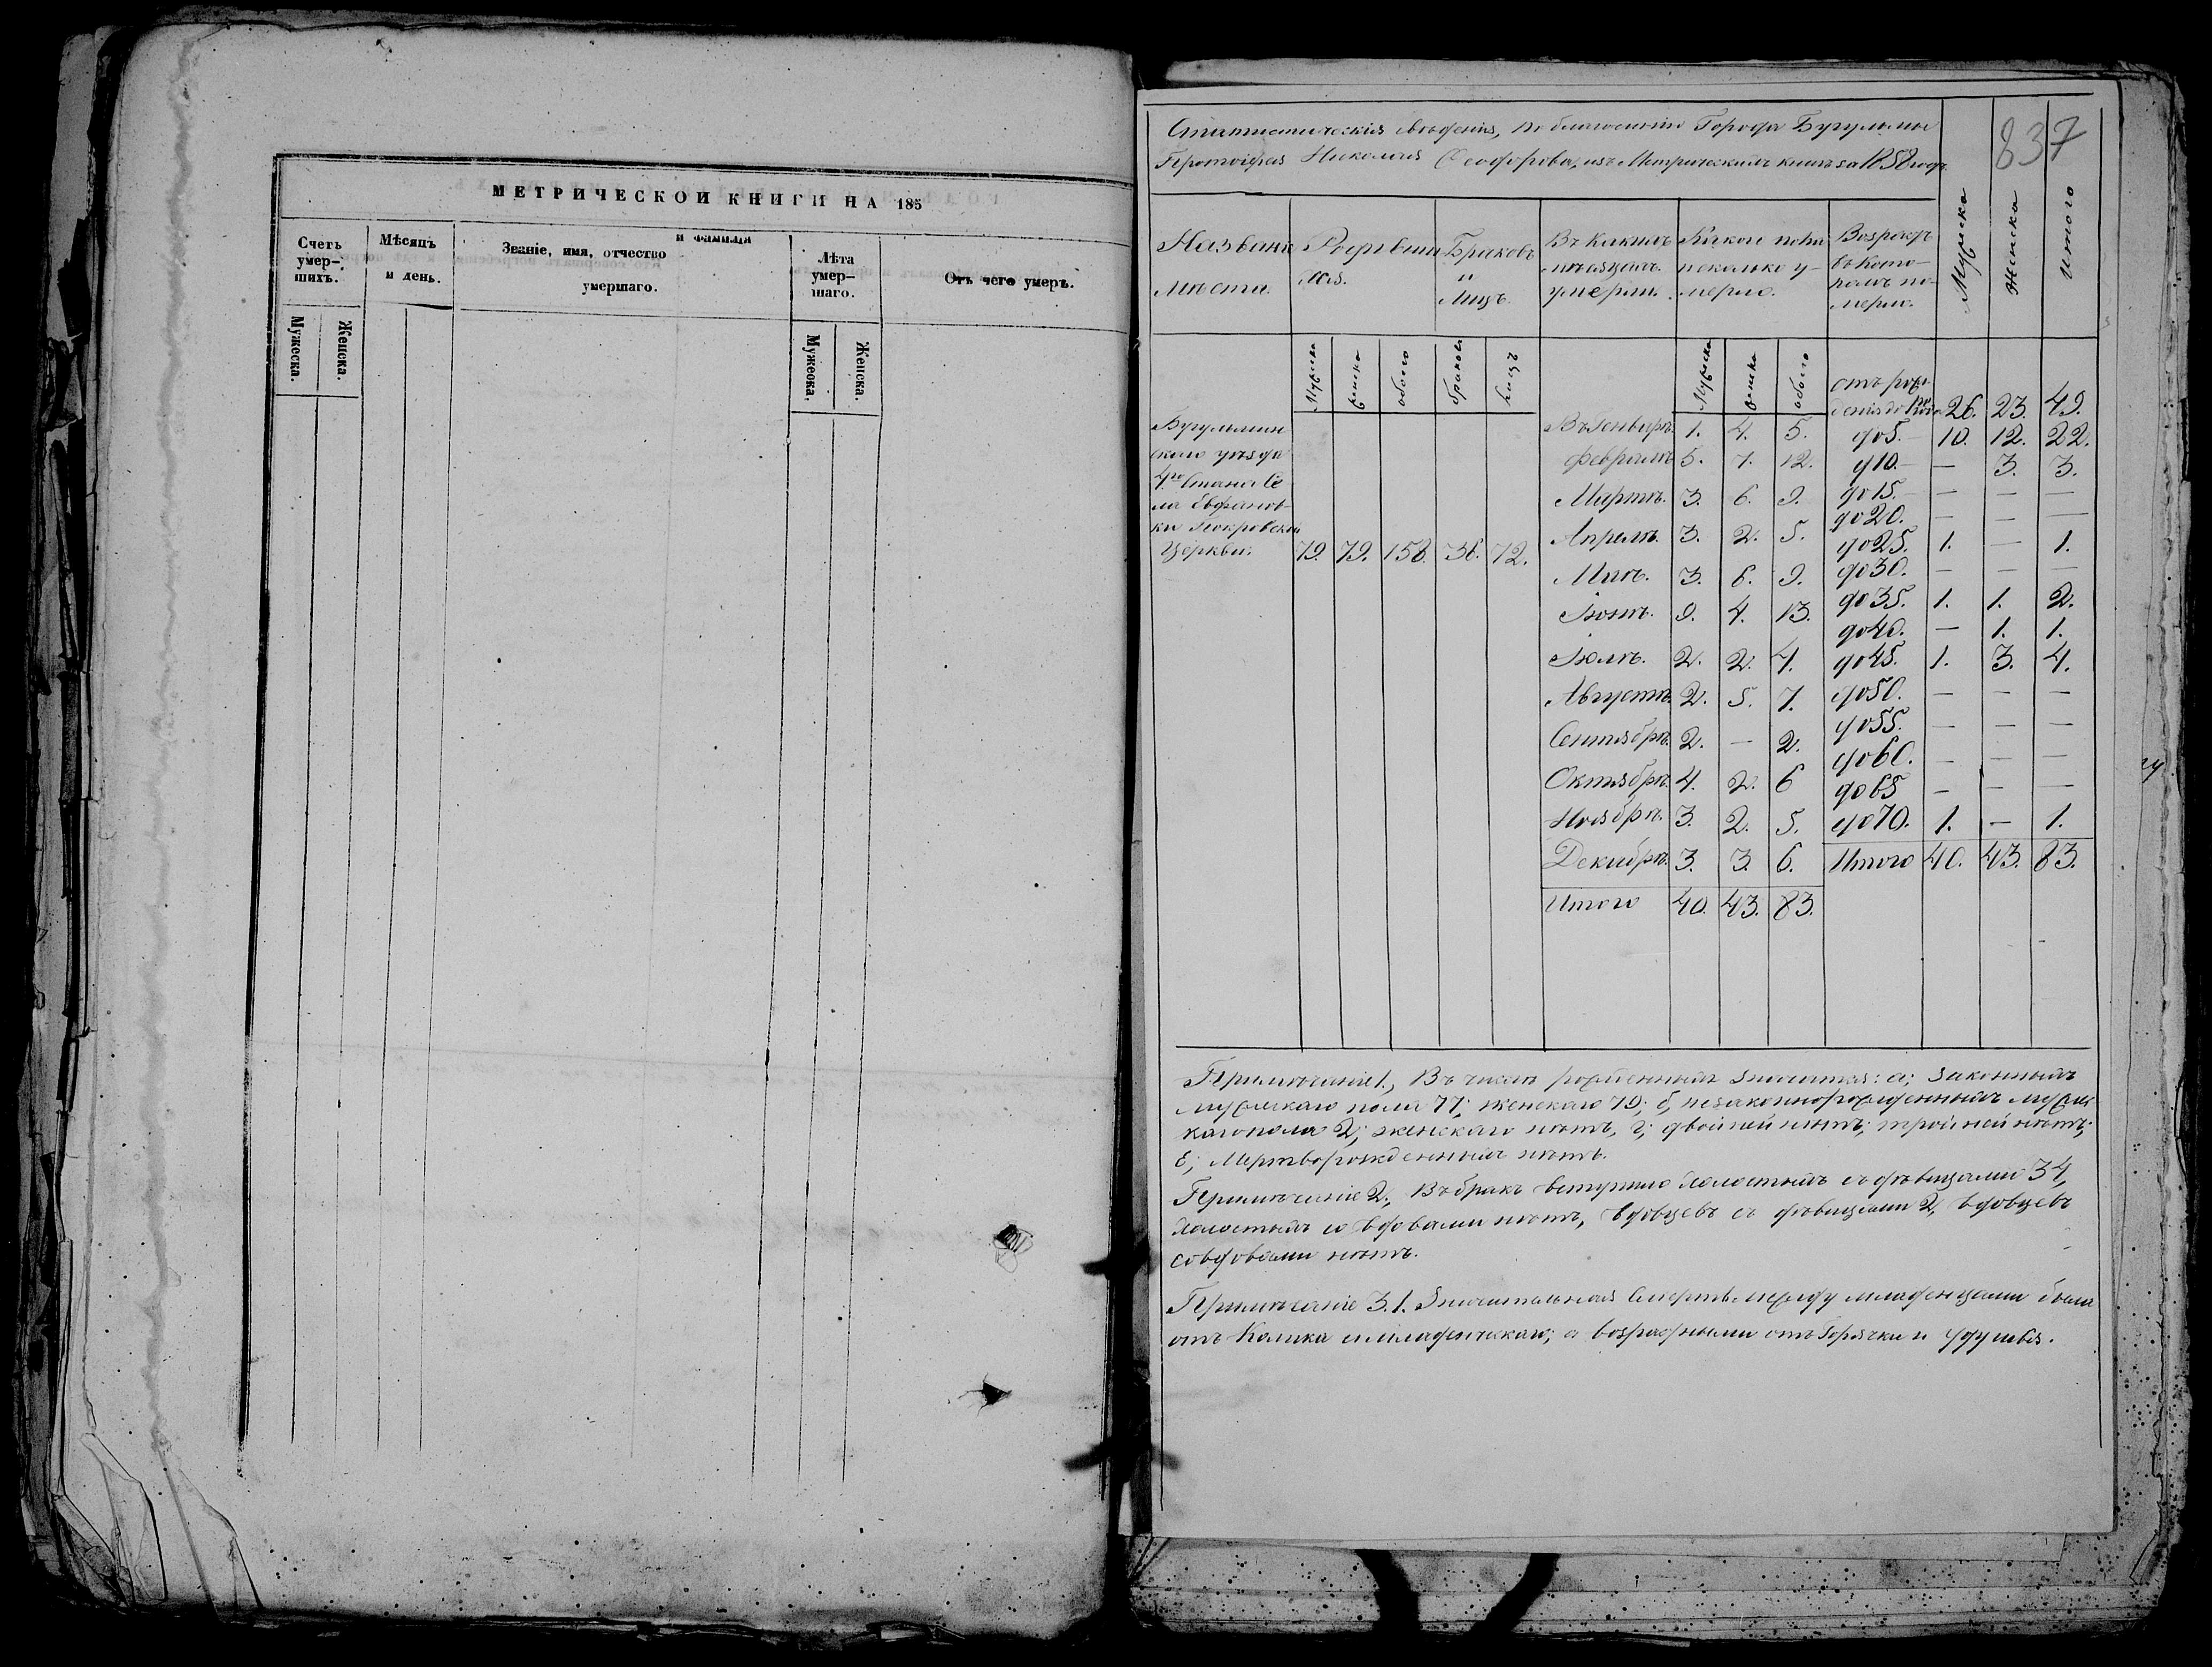 МЕТРИЧЕСКОЙ КНИГИ НА 185
Счетъ умер-шихъ.
Мѣсяцъ и день.
Званіе, имя, отчество и фамилія
умершаго.
Лѣта умер-шаго.
Отъ чего умеръ.
Мужеска. Женска. Мужеска. Женска.
837
Статистическія свѣденія, по благочинію Города Бугульмы
Протоіерея Николая Ѳеодорова, изъ Метрическихъ книгъ за 1858 годъ.
Названіе Мѣста.
Родившихся.
Браковъ и Лицъ.
Въ какихъ мѣсяцахъ умерли.
Какого пола и сколько у-мерло.
Возрастъ въ Кото-ромъ по-мерло.
Мужеска Женска Итого
Мужеска женска обоего браковъ лицъ Мужеска женска обоего
Бугульмин
скаго уѣзда
4го Стана Се
ла Евфанов-
ки Покровской
Церкви. 79. 79. 158. 36. 72.
Въ Генварѣ. 1. 4. 5.
Февралѣ 5. 7. 12.
Мартѣ. 3. 6. 9.
Апрелѣ. 3. 2. 5.
Маѣ. 3. 6. 9.
Іюнѣ. 9. 4. 13.
Іюлѣ. 2. 2. 4.
Августѣ. 2. 5. 7.
Сентябрѣ. 2. — 2.
Октябрѣ. 4. 2. 6
Ноябрѣ. 3. 2. 5.
Декабрѣ. 3. 3. 6.
Итого 40. 43. 83.
отъ рож-
денія до 26. 23. 49.
до 5. 10. 12. 22.
д 10. — 3. 3.
до 15. — — —
до 20. — — —
до 25. 1. — 1.
до 30. — — —
до 35. 1. 1. 2.
до 40. — 1. 1.
до 45. 1. 3. 4.
до 50. — — —
до 55. — — —
до 60. — — —
до 65 — — —
до 70. 1. — 1.
Итого 40. 43. 83.
Примѣчаніе 1., Въ числѣ рожденныхъ значится: а; законныхъ
мужескаго пола 77; женскаго 79; б, незаконнорожденныхъ мужес
каго пола 2; женскаго нѣтъ, г; двойней нѣтъ; тройней нѣтъ;
Мертворожденныхъ нѣтъ.
Примѣчаніе 2., Въ бракъ вступило Холостыхъ съ дѣвицами 34,
Холостыхъ со вдовами нѣтъ, вдовцевъ съ дѣвицами 2, вдовцевъ
со вдовами нѣтъ.
Примѣчаніе 3. 1. Значительная Смерть между младенцами была
отъ Колика младенческаго; а возрастными отъ Горячки и удушья.